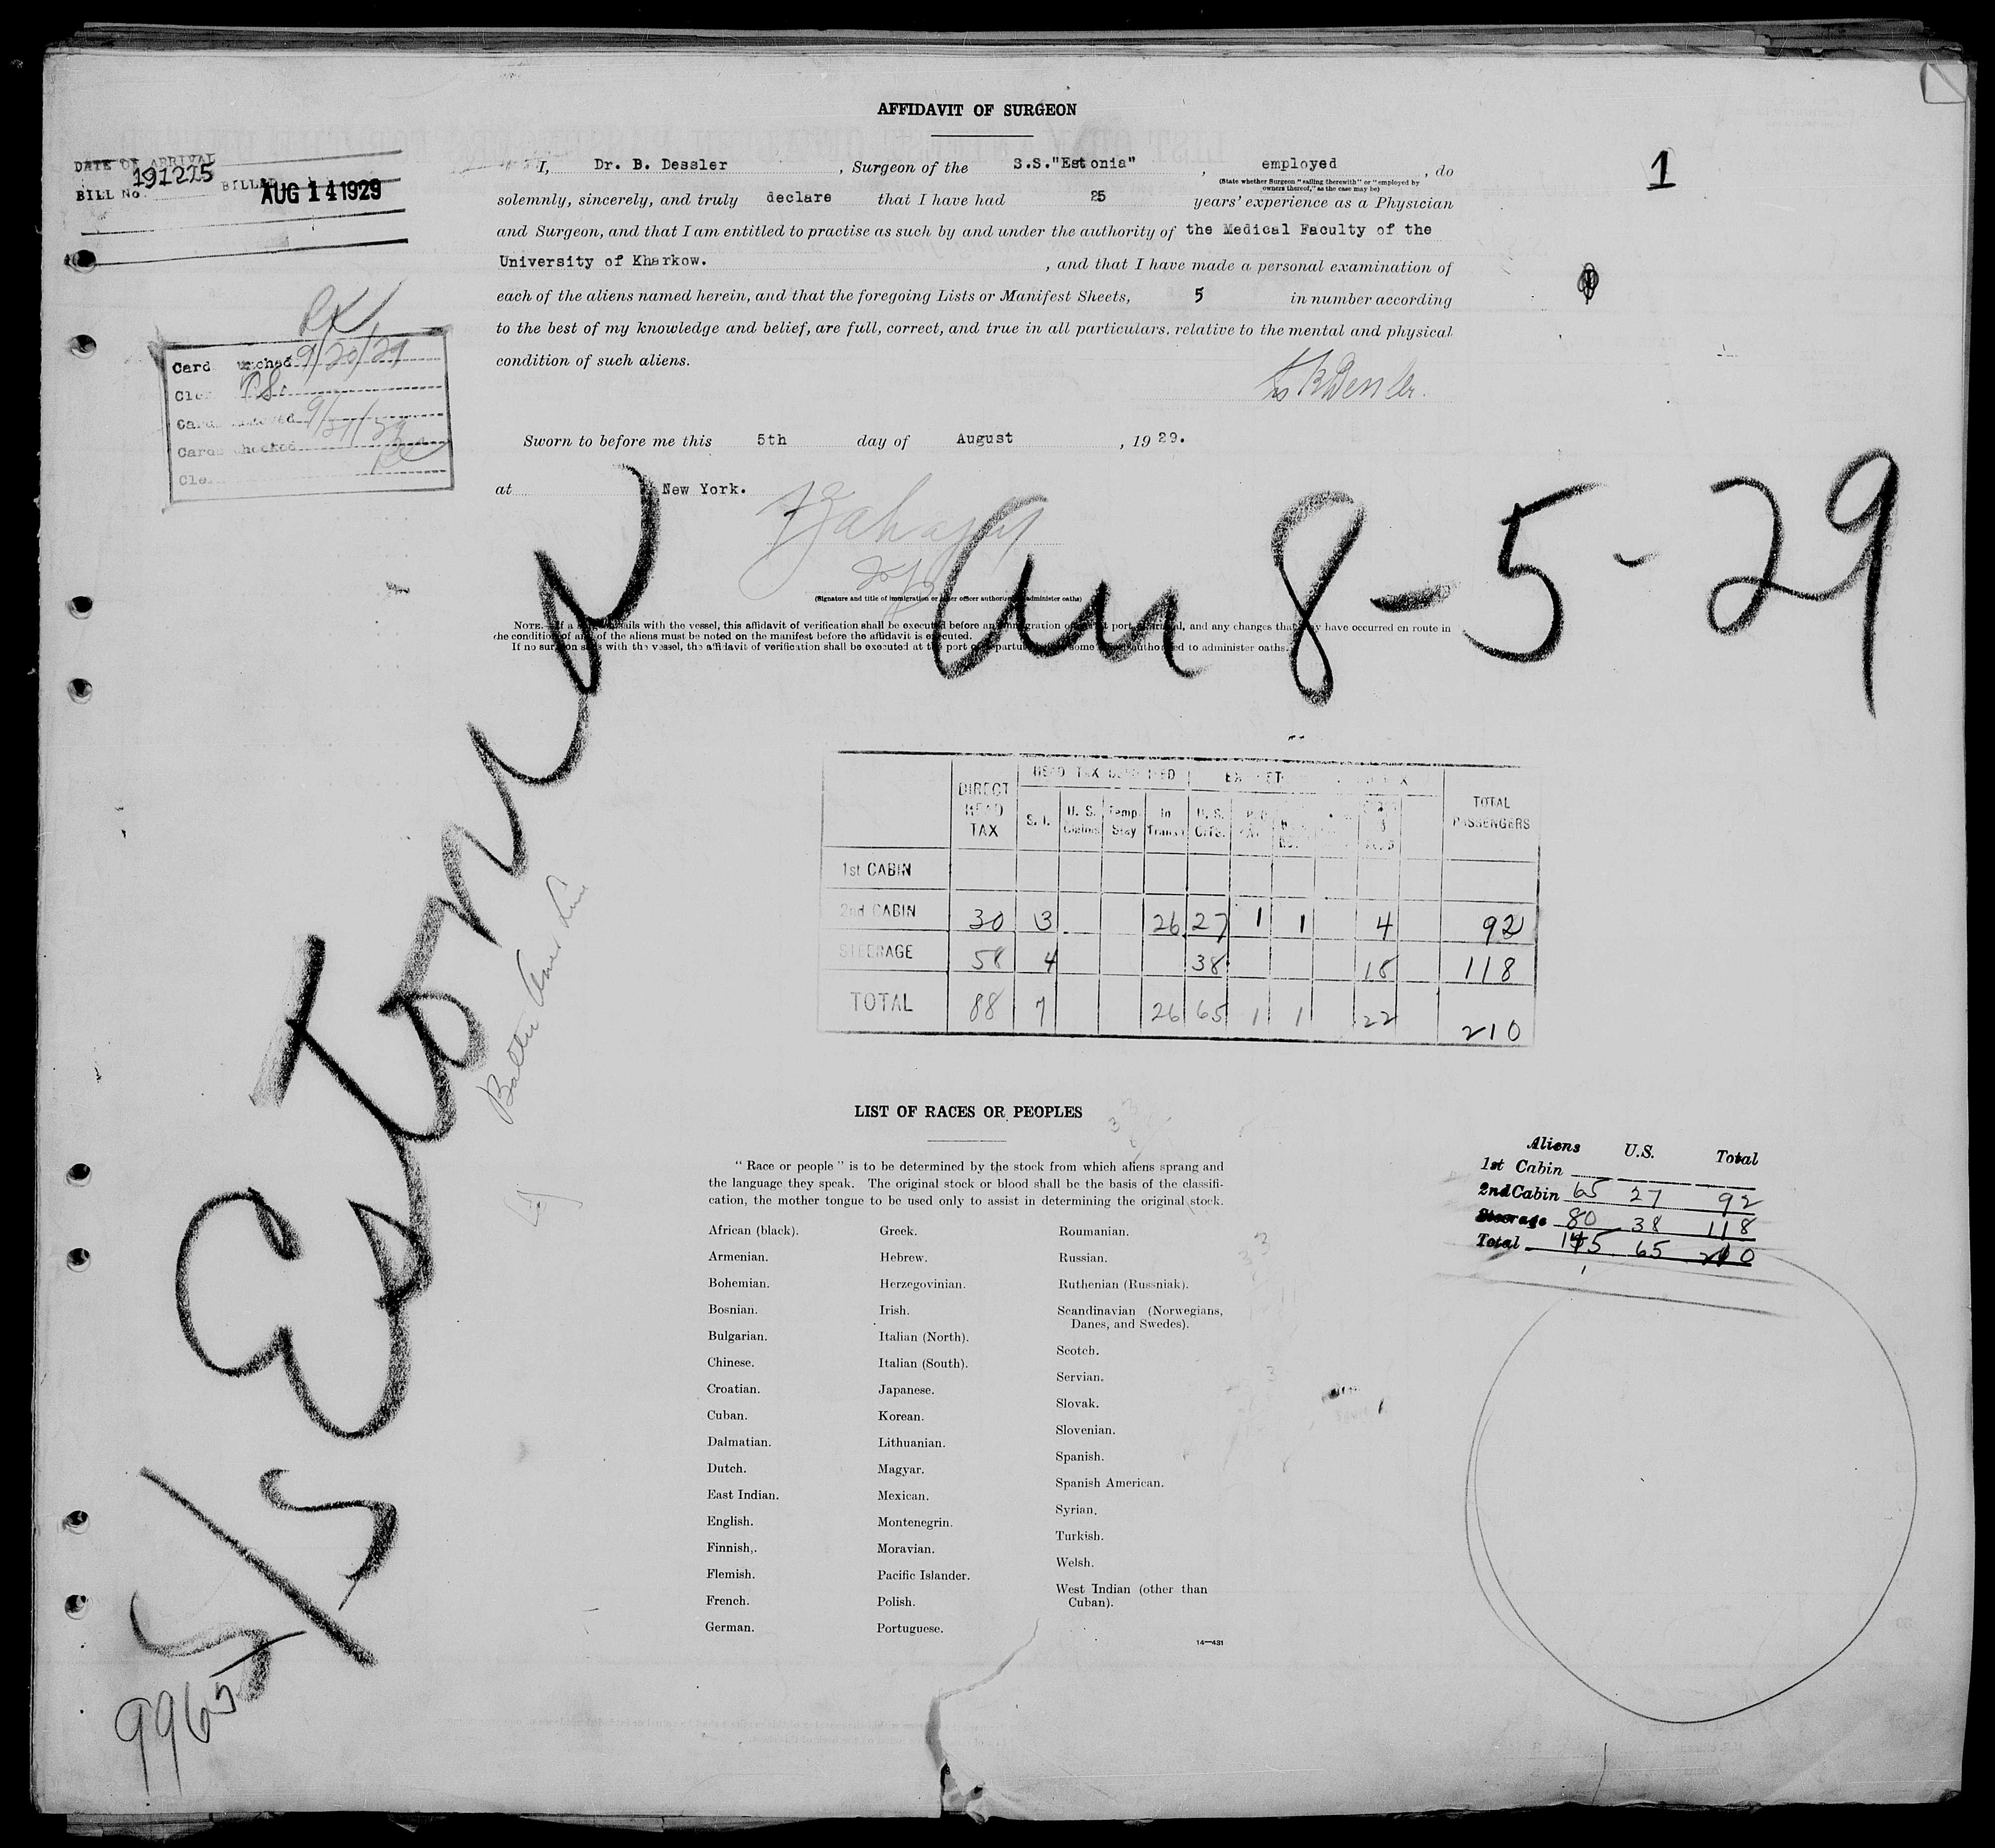 AFFIDAVIT OF SURGEON
DATE OF ARRIVAL
191225
BILL No. BILLED AUG 14 1929
1
I, Dr. B. Dessler, Surgeon of the S.S."Estonia", employed, do
(State whether Surgeon "sailing therewith" or "employed by
owners thereof," as the case may be)
solemnly, sincerely, and truly declare that I have had 25 years' experience as a Physician
and Surgeon, and that I am entitled to practise as such by and under the authority of the Medical Faculty of the
University of Kharkow. , and that I have made a personal examination of
each of the aliens named herein, and that the foregoing Lists or Manifest Sheets, 5 in number according
to the best of my knowledge and belief, are full, correct, and true in all particulars, relative to the mental and physical
condition of such aliens.
Dr BDessler.
Card 9/20/29
Cards 9/21/29
Cards checked
Sworn to before me this 5th day of August, 1929.
at New York.
(Signature and title of immigration or other officer authorized to administer oaths)
8-5-29
NOTE.—If a surgeon sails with the vessel, this affidavit of verification shall be executed before an immigration officer at port of arrival, and any changes that may have occurred en route in
the condition of any of the aliens must be noted on the manifest before the affidavit is executed.
If no surgeon sails with the vessel, the affidavit of verification shall be executed at the port of departure before some officer authorized to administer oaths.
S/S Estonia
9965
DIRECT HEAD TAX HEAD TAX TOTAL PASSENGERS
S. I. U. S. Temp. Stay In Transit U. S. Cits.
1st CABIN
2nd CABIN 30 3 26 27 1 1 4 92
STEERAGE 58 4 38 18 118
TOTAL 88 7 26 65 1 1 22 210
LIST OF RACES OR PEOPLES
"Race or people" is to be determined by the stock from which aliens sprang and
the language they speak. The original stock or blood shall be the basis of the classifi-
cation, the mother tongue to be used only to assist in determining the original stock.
African (black).
Armenian.
Bohemian.
Bosnian.
Bulgarian.
Chinese.
Croatian.
Cuban.
Dalmatian.
Dutch.
East Indian.
English.
Finnish.
Flemish.
French.
German.
Greek.
Hebrew.
Herzegovinian.
Irish.
Italian (North).
Italian (South).
Japanese.
Korean.
Lithuanian.
Magyar.
Mexican.
Montenegrin.
Moravian.
Pacific Islander.
Polish.
Portuguese.
Roumanian.
Russian.
Ruthenian (Russniak).
Scandinavian (Norwegians,
Danes, and Swedes).
Scotch.
Servian.
Slovak.
Slovenian.
Spanish.
Spanish American.
Syrian.
Turkish.
Welsh.
West Indian (other than
Cuban).
14—431
Aliens U.S. Total
1st Cabin
2nd Cabin 65 27 92
Steerage 80 38 118
Total 145 65 210